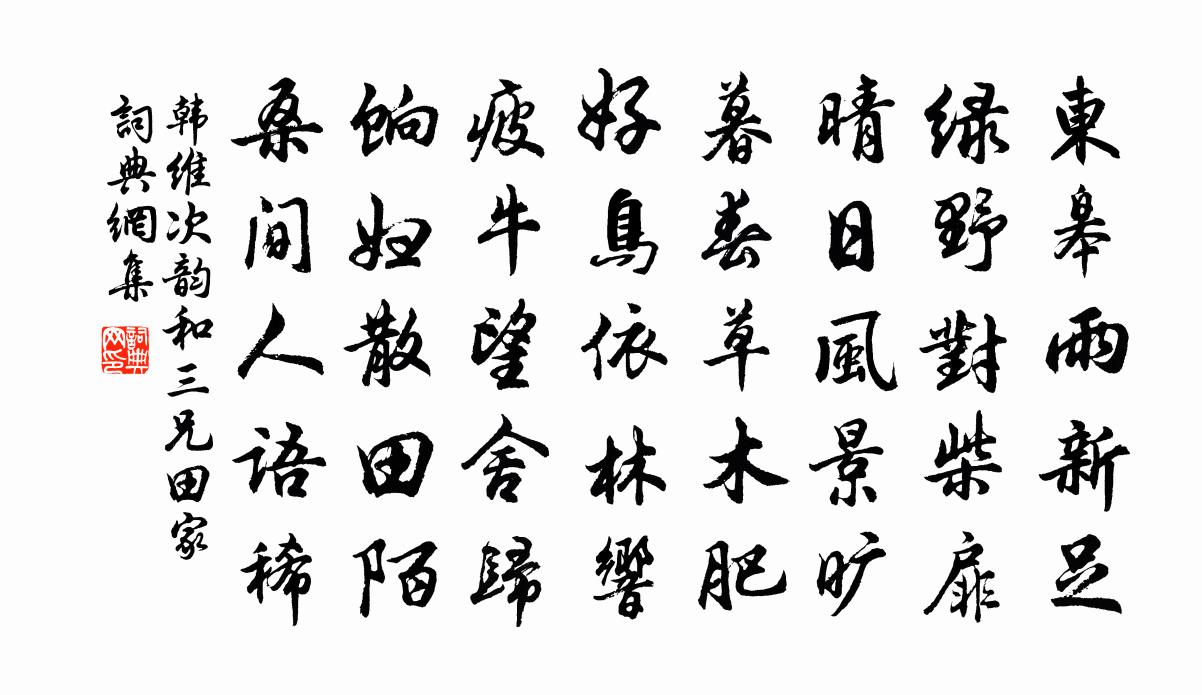 東皋雨新足
绿野對柴扉
晴日風景旷
暮春草木肥
好鳥依林響
疲牛望舍歸
餉妇散田陌
桑间人语稀
韩维次韵和三兄田家
詞典網集
詞典网印